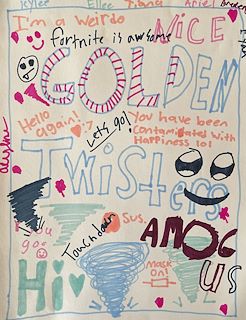 Kylee Ellee Tiana Ariel Braden
I'm a Weirdo
NICE
fortnite is awesome
GOLDEN
Hello again! :7
Let's go!
You have been
Contaminated with
Happiness 101
Twisters
Sus.
Touchdown
AMOG
US
Mask
On!
Hi